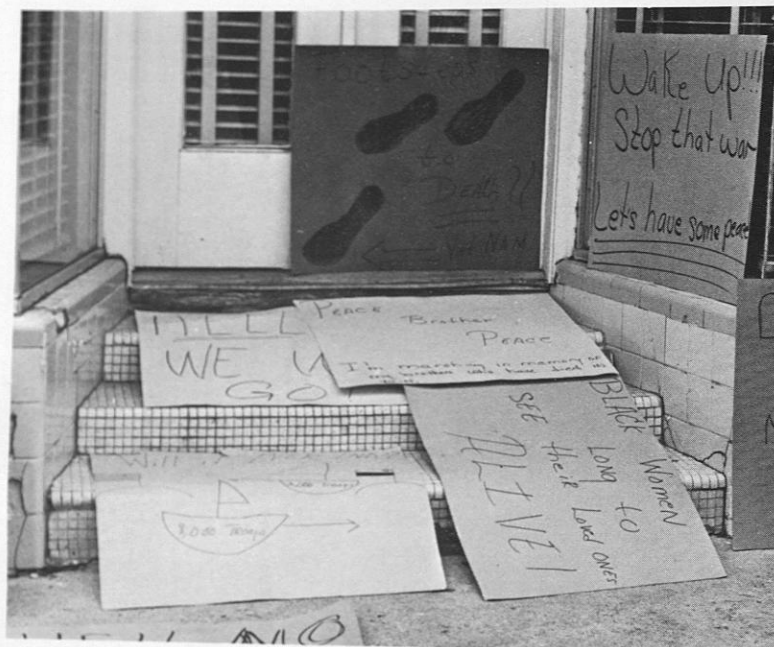 Footsteps
to
Death!!
VIET NAM
Wake Up!!!
Stop that war
Let's have some peace
HELL
WE W
GO
PEACE Brother
PEACE
I'm marching in memory of
my brother who have died
BLACK WOMEN
LONG TO
SEE their Loved ONES
ALIVE!
8,000 Troops
NO